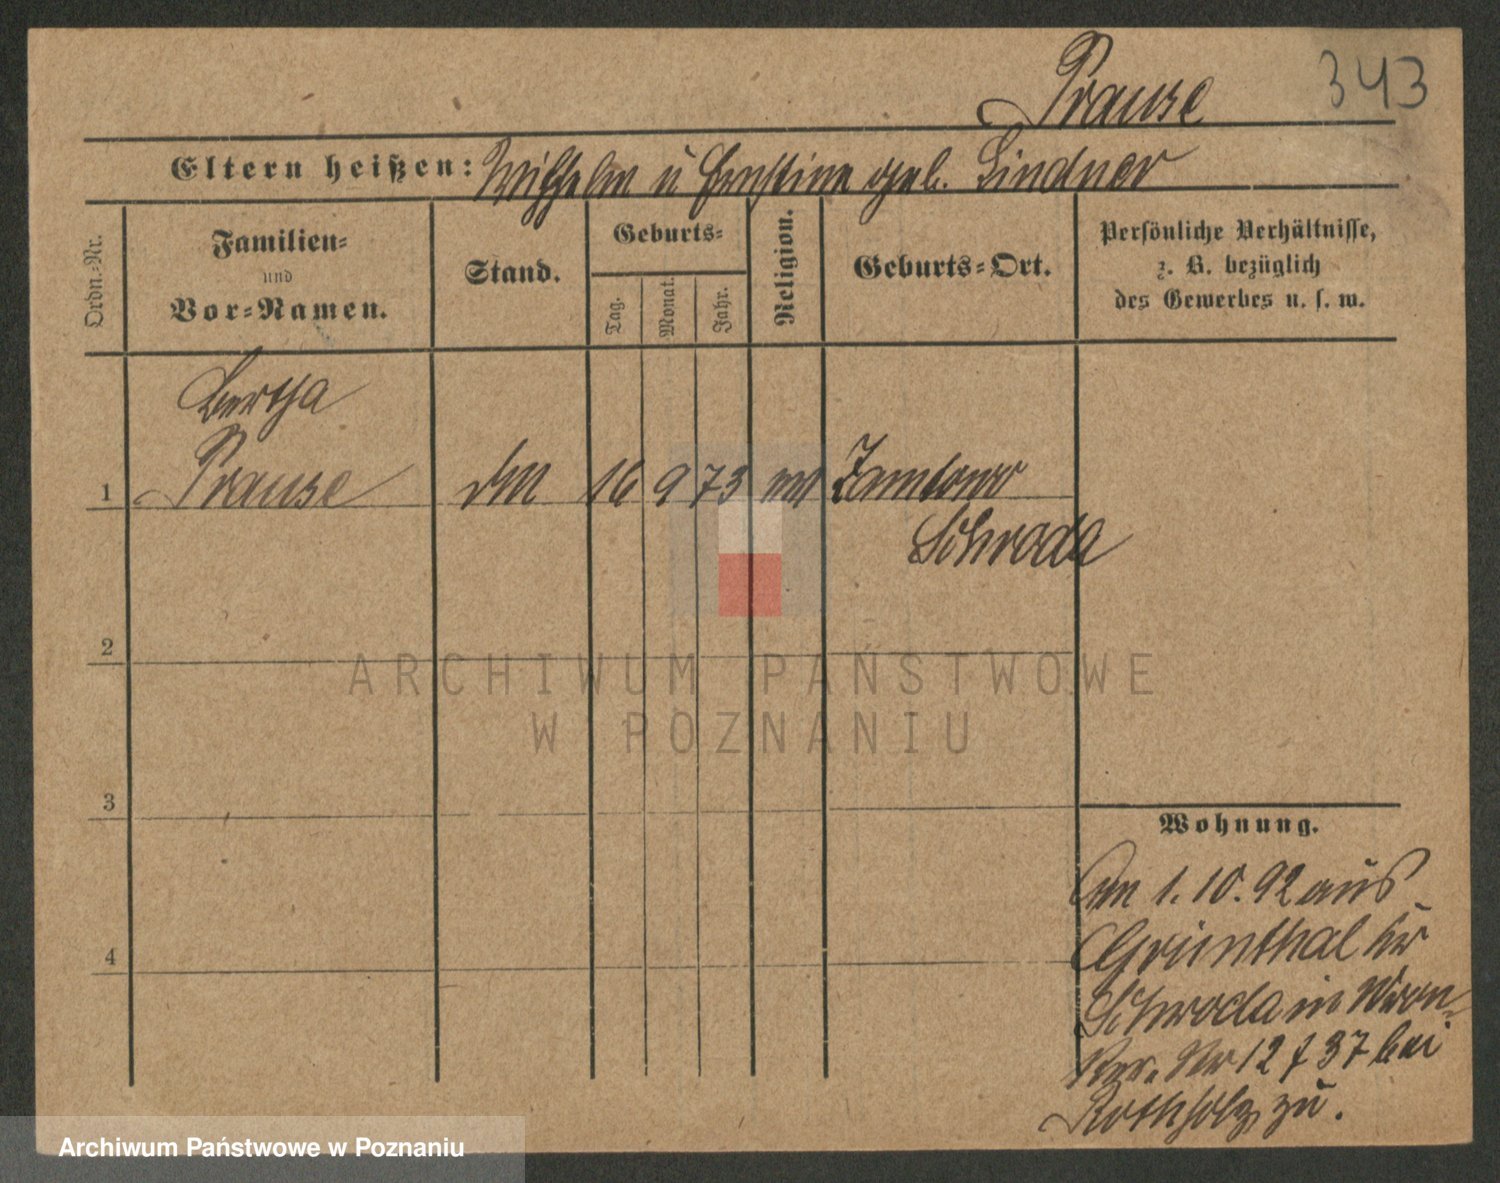 Prause
343
Eltern heißen: Wilhelm u Ernstine geb. Lindner
Ordn.-Nr.
Familien-
und
Vor-Namen.
Stand.
Geburts-
Tag.
Monat.
Jahr.
Religion.
Geburts-Ort.
Persönliche Verhältnisse,
z. B. bezüglich
des Gewerbes u. s. w.
Bertha
1 Prause 16 9 73 Zamtowo
Schroda
2
3
4
Wohnung.
Am 1.10.92 aus
Grünthal Kr
Schroda in
Nr 12 f 37 bei
Rothholz zu.
ARCHIWUM PAŃSTWOWE
W POZNANIU
Archiwum Państwowe w Poznaniu